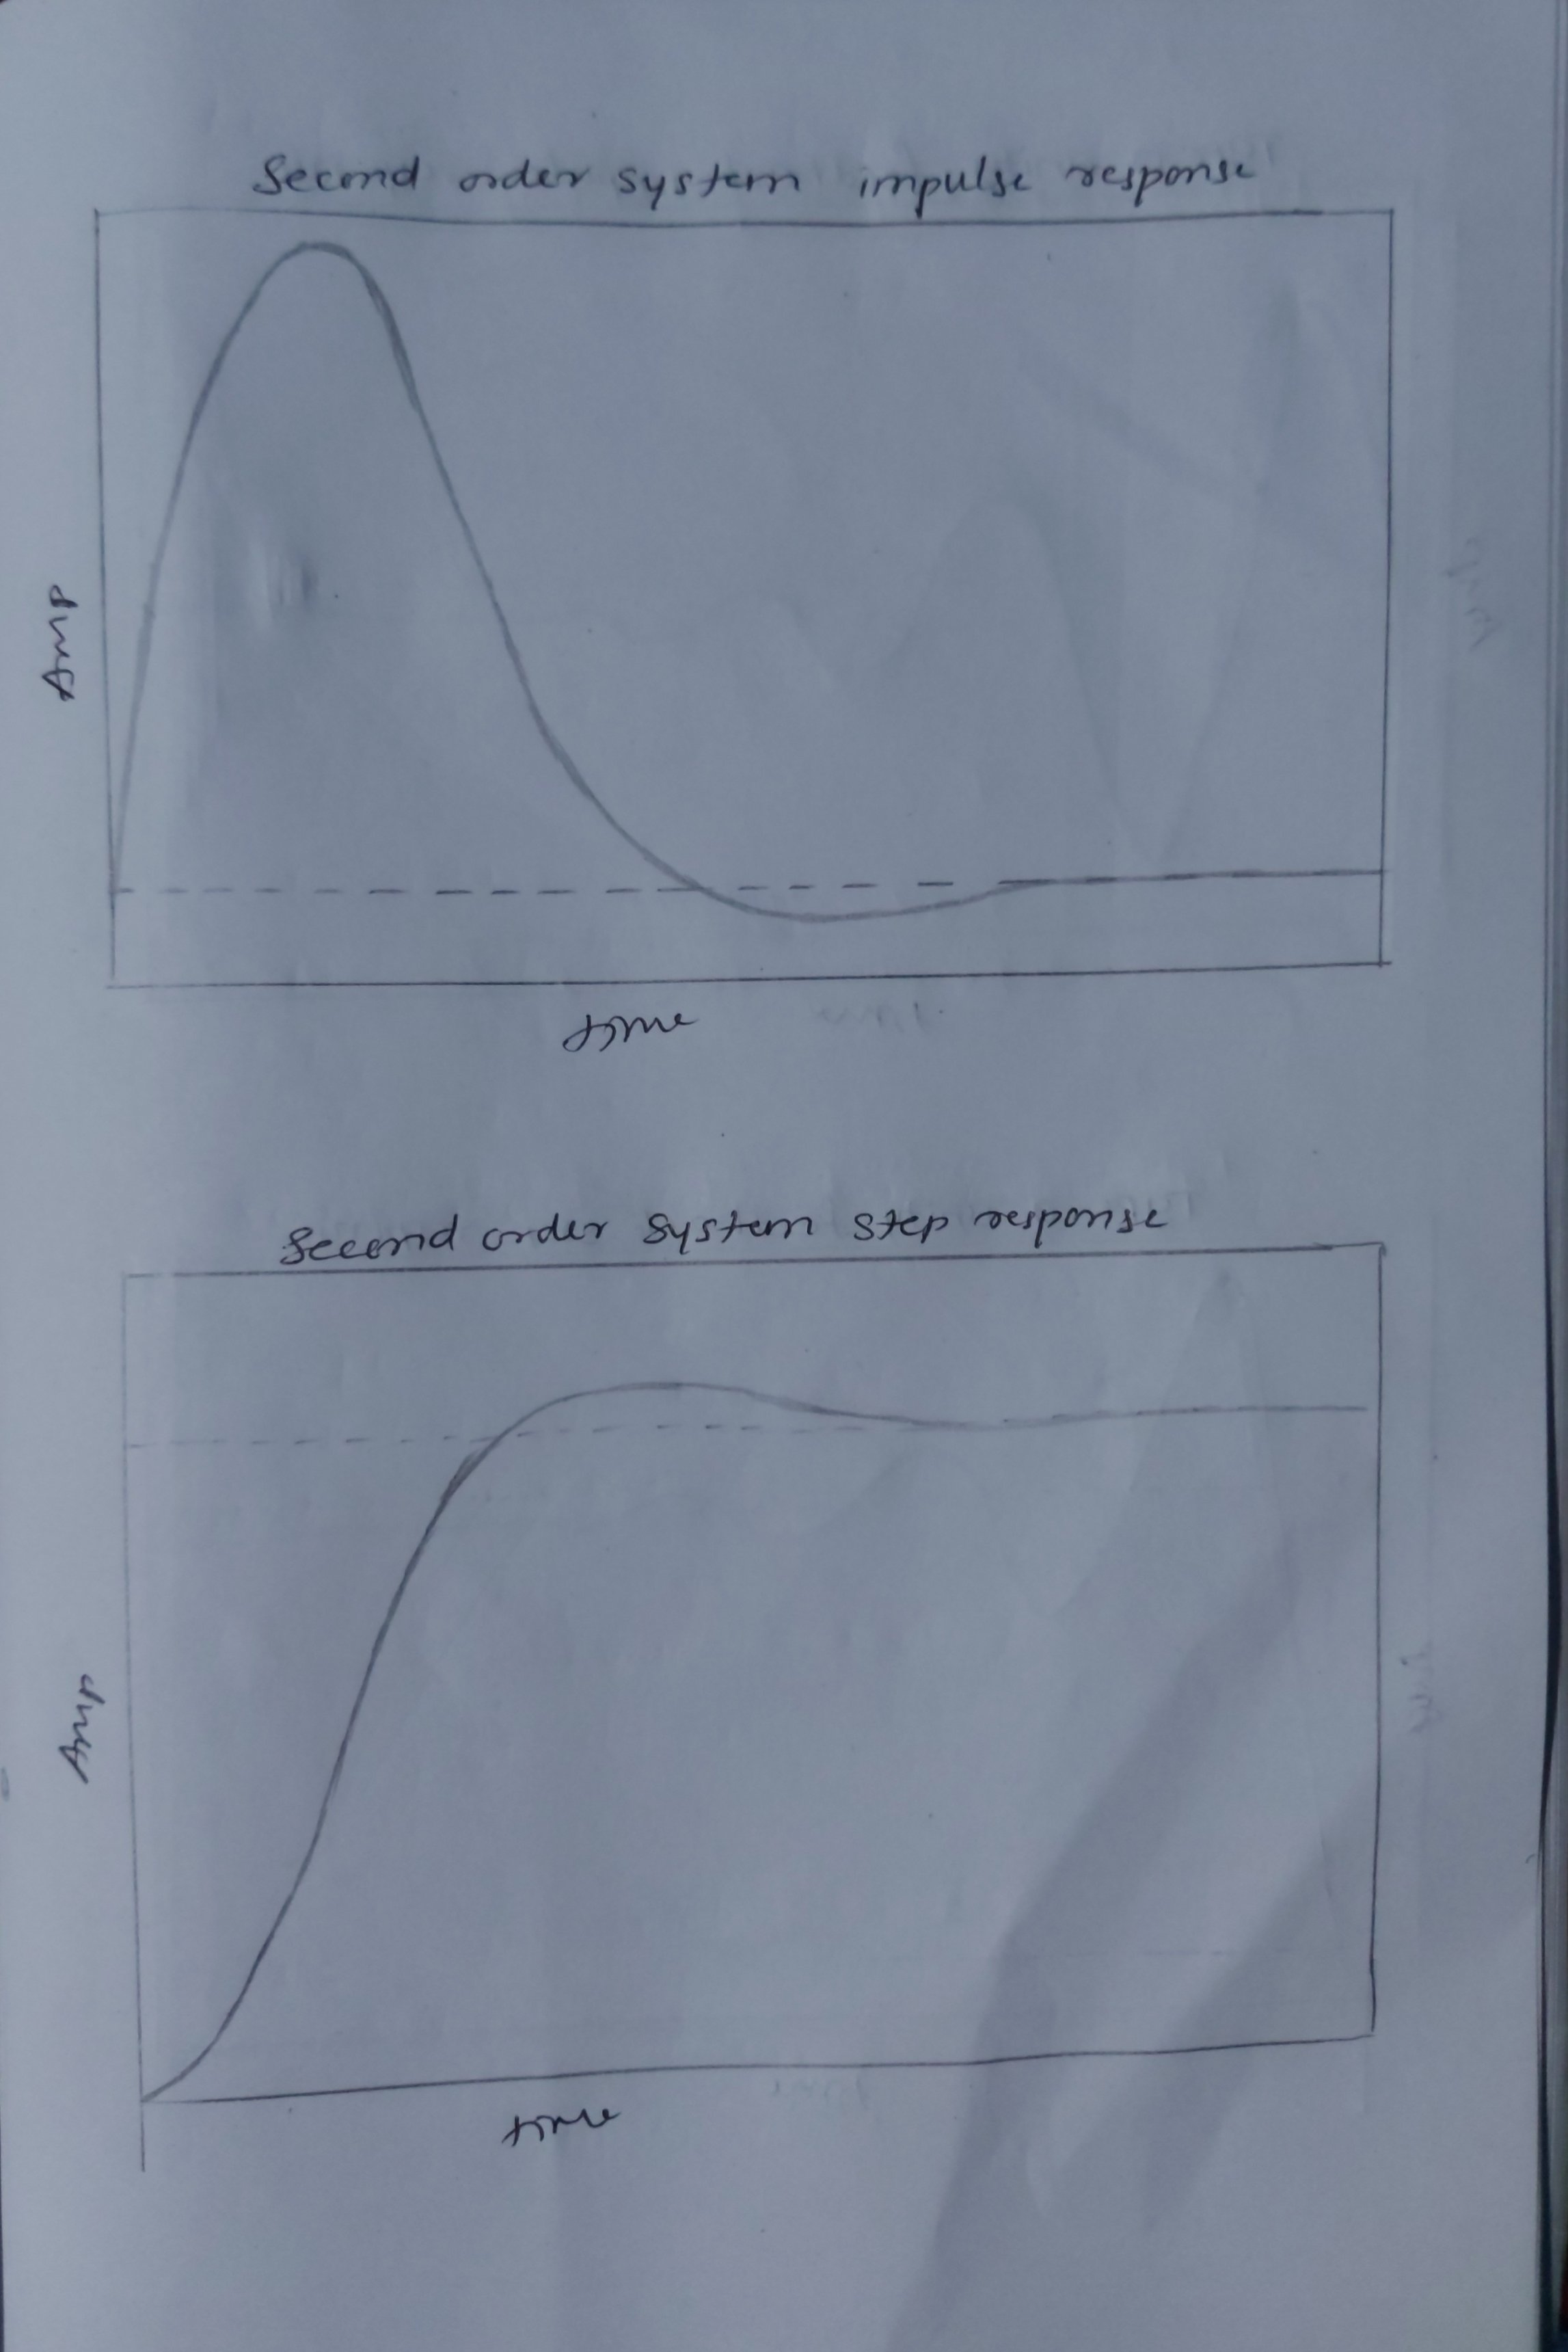 Second order system impulse response
Amp
time
Second order system step response
Amp
time